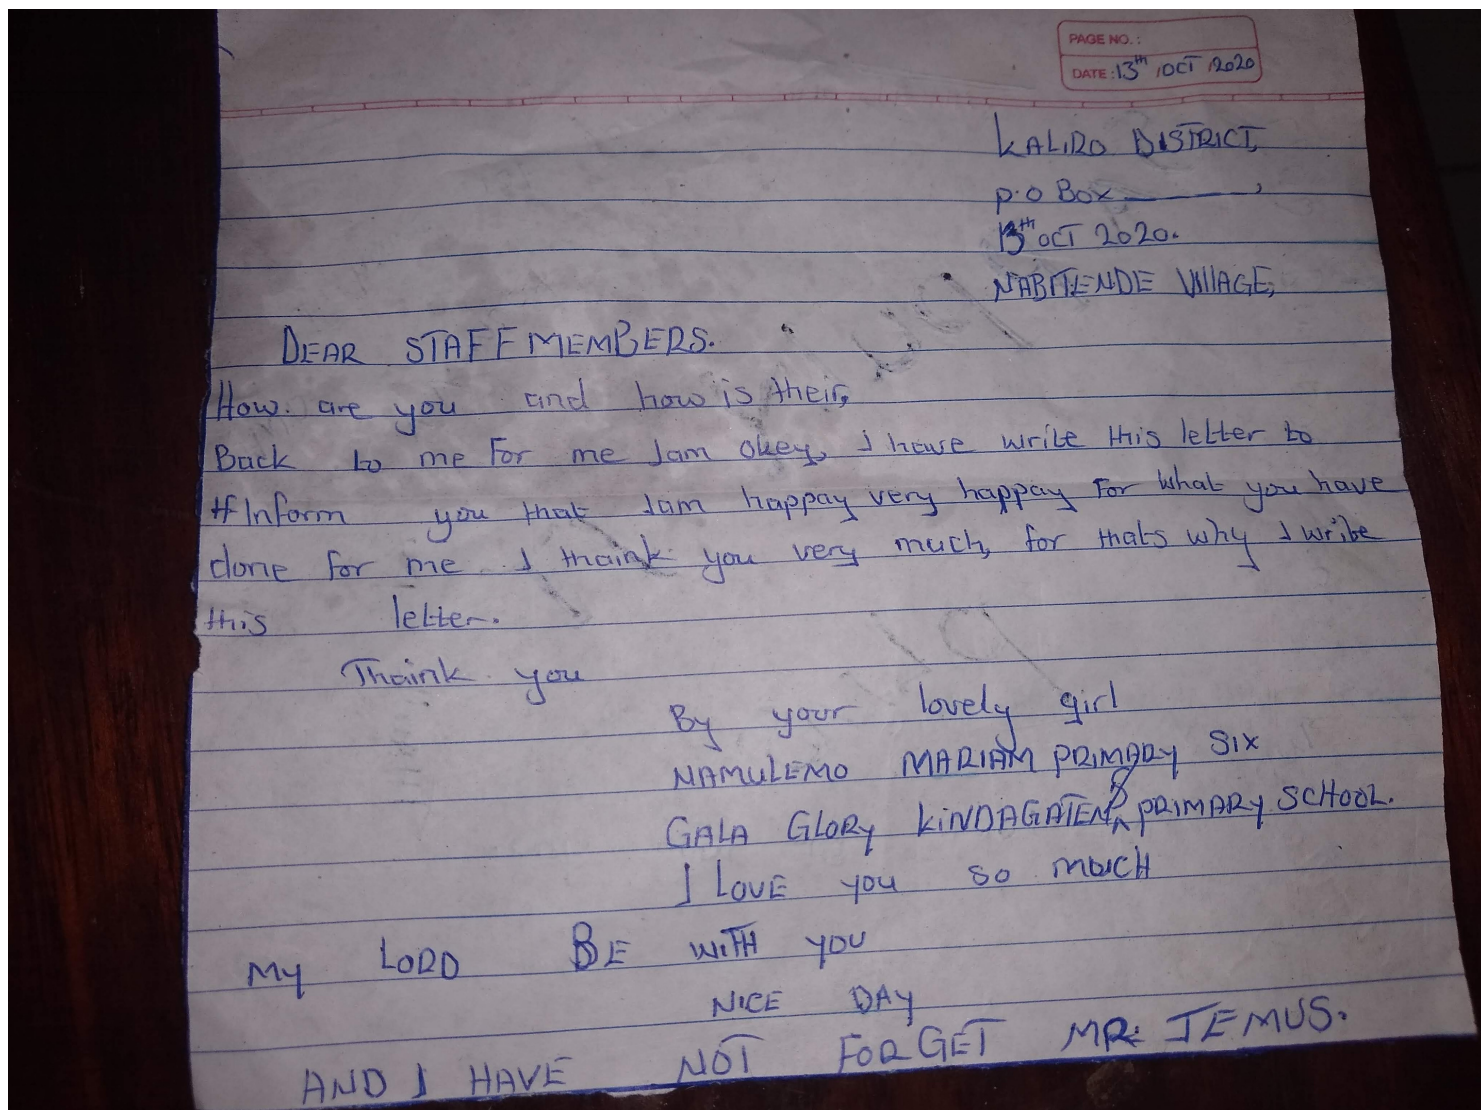 PAGE NO.:
DATE: 13th OCT 2020
KALIRO DISTRICT,
P.O Box ————,
13th OCT 2020.
NABITENDE VILLAGE,
DEAR STAFF MEMBERS.
How are you and how is their,
Back to me For me Iam okey, I have write this letter to
Inform you that Iam happay very happay For what you have
done for me I thaink you very much, for thats why I write
this letter.
Thaink you
By your lovely girl
NAMULEMO MARIAM PRIMARY SIX
GALA GLORY KINDAGATEN & PRIMARY SCHOOL.
I LOVE you so much
MY LORD BE WITH YOU
NICE DAY
AND I HAVE NOT FORGET MR: JEMUS.